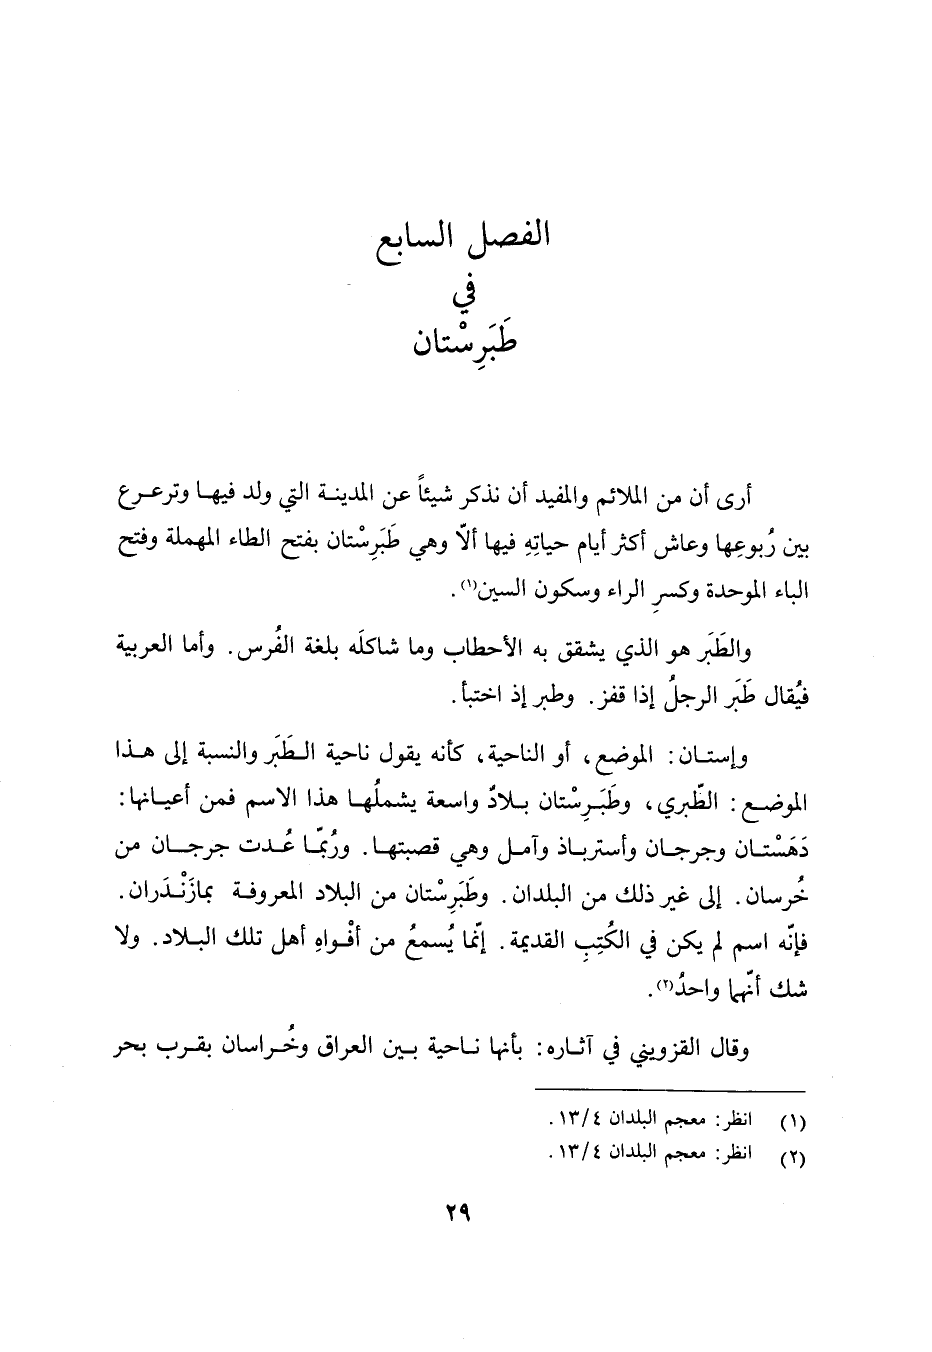 الفصل السابع
في
طَبَرِسْتان
أرى أن من الملائم والمفيد أن نذكر شيئاً عن المدينة التي ولد فيها وترعرع
بين رُبوعِها وعاش أكثر أيام حياتِهِ فيها ألّا وهي طَبَرِسْتان بفتح الطاء المهملة وفتح
الباء الموحدة وكسرِ الراء وسكون السين(١).
والطَبَر هو الذي يشقق به الأحطاب وما شاكلَه بلغة الفُرس. وأما العربية
فيُقال طَبَر الرجلُ إذا قفز. وطبر إذ اختبأ.
وإستان: الموضع، أو الناحية، كأنه يقول ناحية الطَبَر والنسبة إلى هذا
الموضع: الطّبري، وطَبَرِسْتان بلادٌ واسعة يشملُها هذا الاسم فمن أعيانها:
دَهَسْتان وجرجان وأسترباذ وآمل وهي قصبتها. ورُبّما عُدت جرجان من
خُرسان. إلى غير ذلك من البلدان. وطَبَرِسْتان من البلاد المعروفة بمازَنْدَران.
فإنّه اسم لم يكن في الكُتِبِ القديمة. إنّما يُسمعُ من أفْواهِ أهل تلك البلاد. ولا
شك أنّهما واحدُ(٢).
وقال القزويني في آثاره: بأنها ناحية بين العراق وخُراسان بقرب بحر
(١) انظر: معجم البلدان ١٣/٤.
(٢) انظر: معجم البلدان ١٣/٤.
٢٩